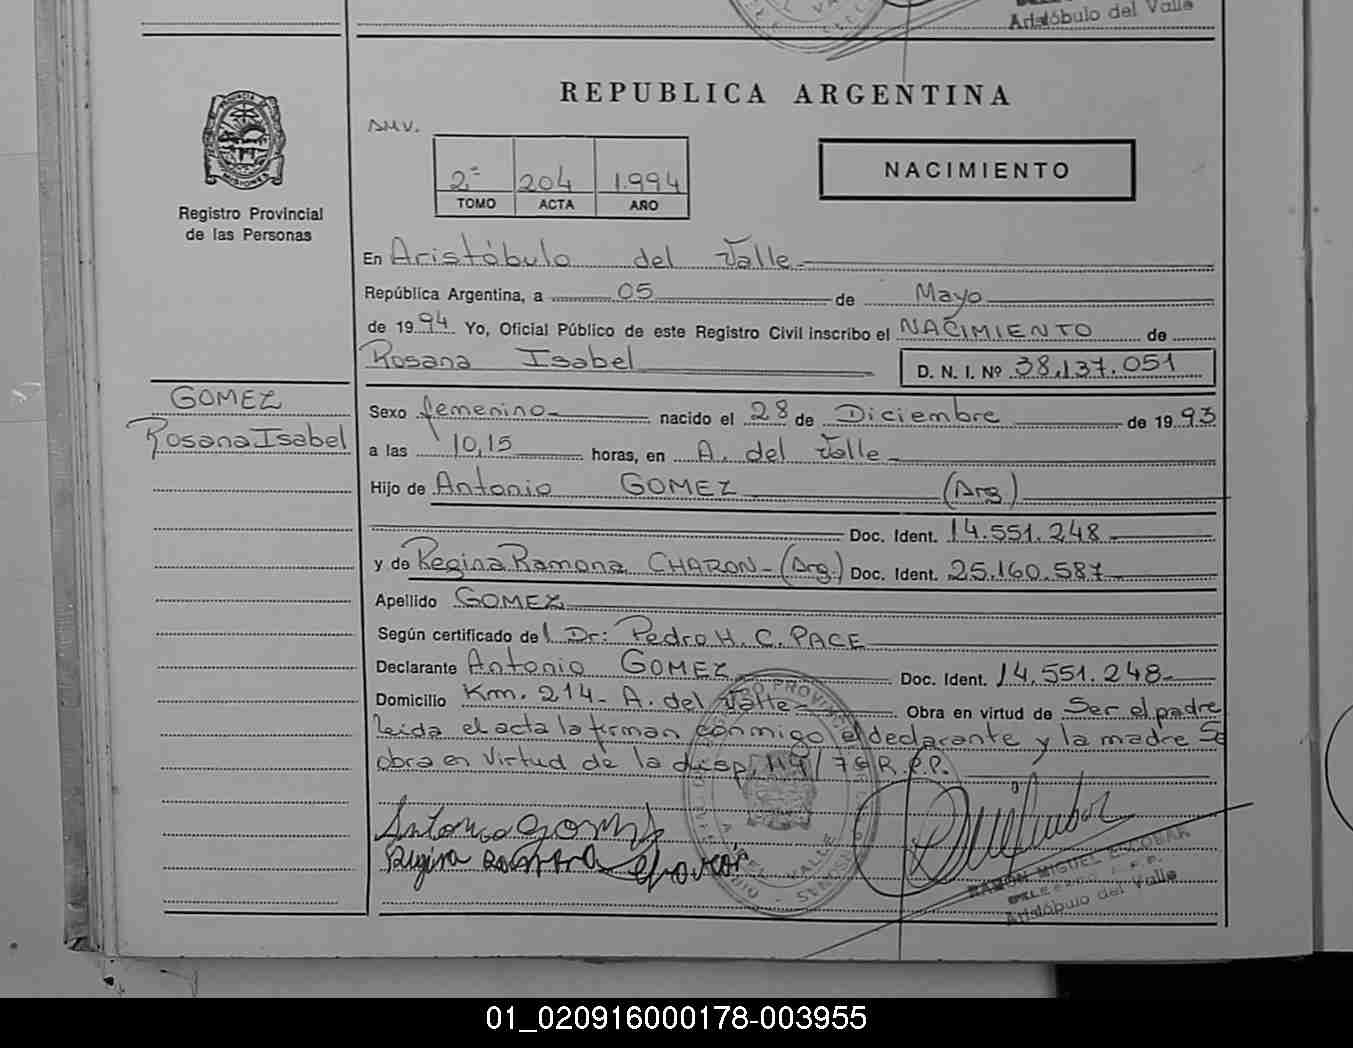 Aristóbulo del Valle
REPUBLICA ARGENTINA
PROVINCIA DE
MISIONES
Registro Provincial
de las Personas
SMV.
2ª 204 1.994
TOMO ACTA AÑO
NACIMIENTO
En Aristóbulo del Valle
República Argentina, a 05 de Mayo
de 1994 Yo, Oficial Público de este Registro Civil inscribo el NACIMIENTO de
Rosana Isabel D. N. I. Nº 38.137.051
GOMEZ
Rosana Isabel
Sexo femenino nacido el 28 de Diciembre de 1993
a las 10,15 horas, en A. del Valle
Hijo de Antonio GOMEZ (Arg)
Doc. Ident. 14.551.248
y de Regina Ramona CHARON - (Arg.) Doc. Ident. 25.160.587
Apellido GOMEZ
Según certificado del Dr: Pedro H. C. PACE
Declarante Antonio GOMEZ Doc. Ident. 14.551.248
Domicilio Km. 214 - A. del Valle Obra en virtud de Ser el padre
Leida el acta la firman conmigo el declarante y la madre Se
obra en Virtud de la disp. 119/76 R.P.P.
Antonio Gomez
Regina Ramona
RAMON MIGUEL ESCOBAR
Aristóbulo del Valle
01_020916000178-003955